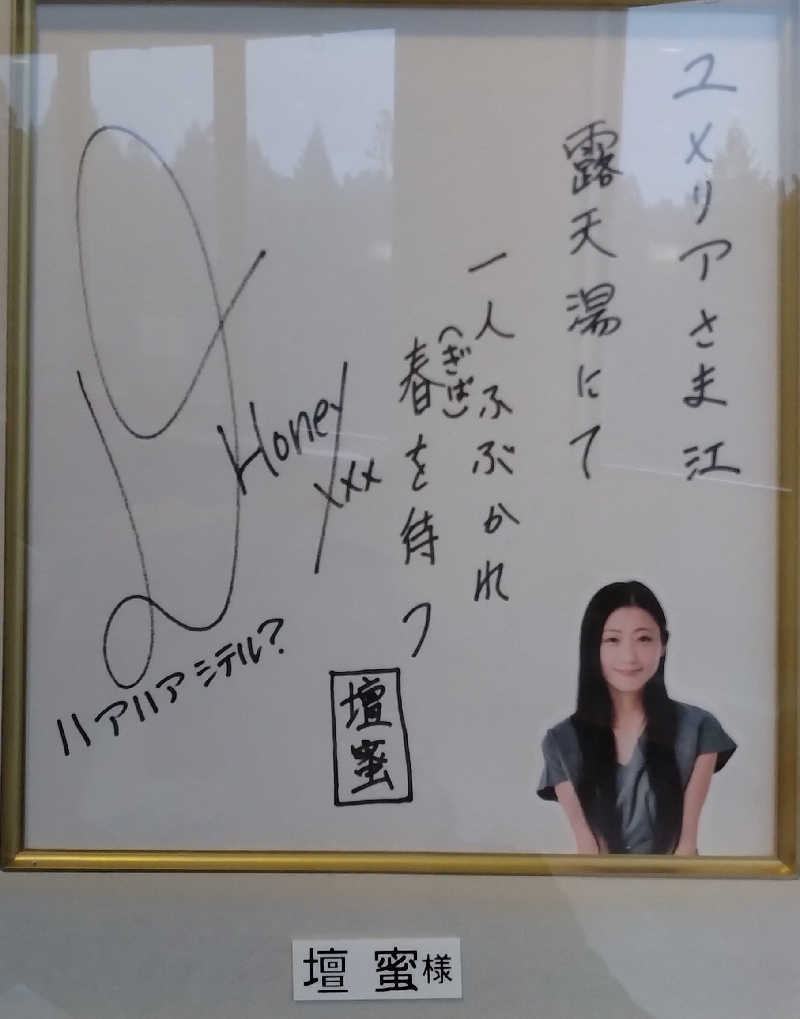 ユメリアさま江
露天湯にて
一人ふぶかれ
(へぎば)
春を待つ
壇蜜
Honey
xxx
ハアハアシテル?
壇 蜜様